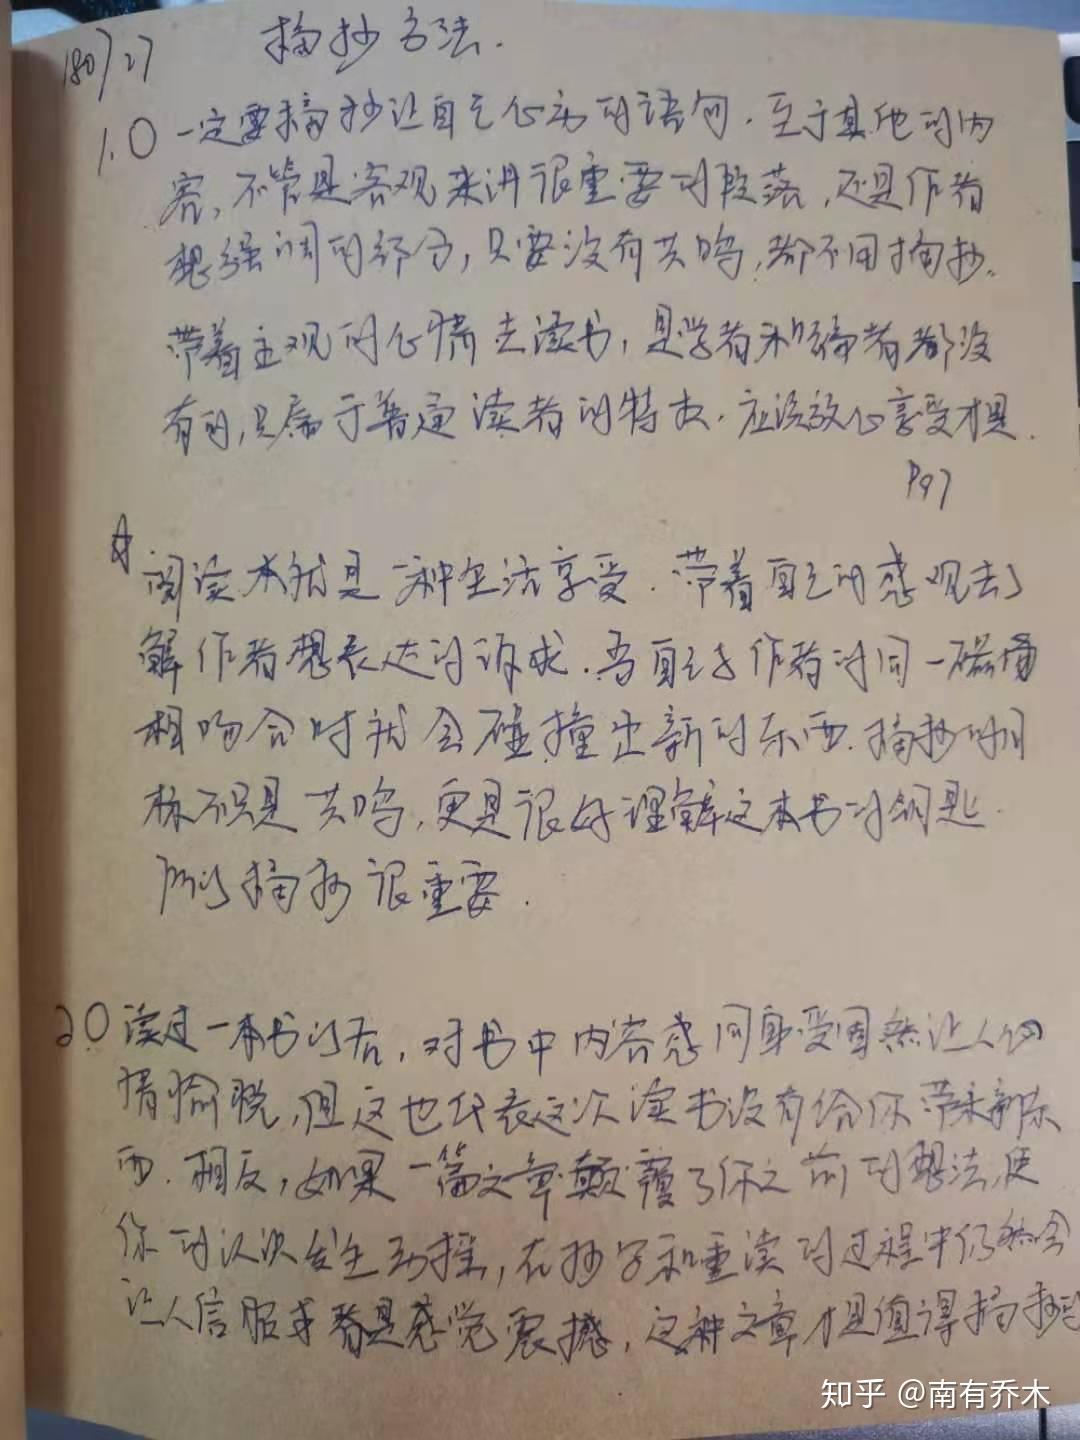 180727 摘抄方法.
1.0 一定要摘抄让自己心动的语句.至于其他的内
容,不管是客观来讲很重要的段落,还是作者
想强调的部分,只要没有共鸣,都不用摘抄。
带着主观的心情去读书,是学者和编者都没
有的,只属于普通读者的特权.应该放心享受才是.
P97
☆ 阅读本就是一种生活享受.带着自己的感观去了
解作者想表达的诉求.当自己与作者的同一磁场
相吻合时就会碰撞出新的东西.摘抄的目
标不只是共鸣,更是很好理解这本书的钥匙.
所以摘抄很重要.
2.0 读过一本书以后,对书中内容感同身受固然让人心
情愉悦,但这也代表这次读书没有给你带来新东
西.相反,如果一篇文章颠覆了你之前的想法,使
你的认识发生动摇,在抄写和重读的过程中仍然会
让人信服或者是感觉震撼,这种文章才是值得摘抄的
知乎 @南有乔木